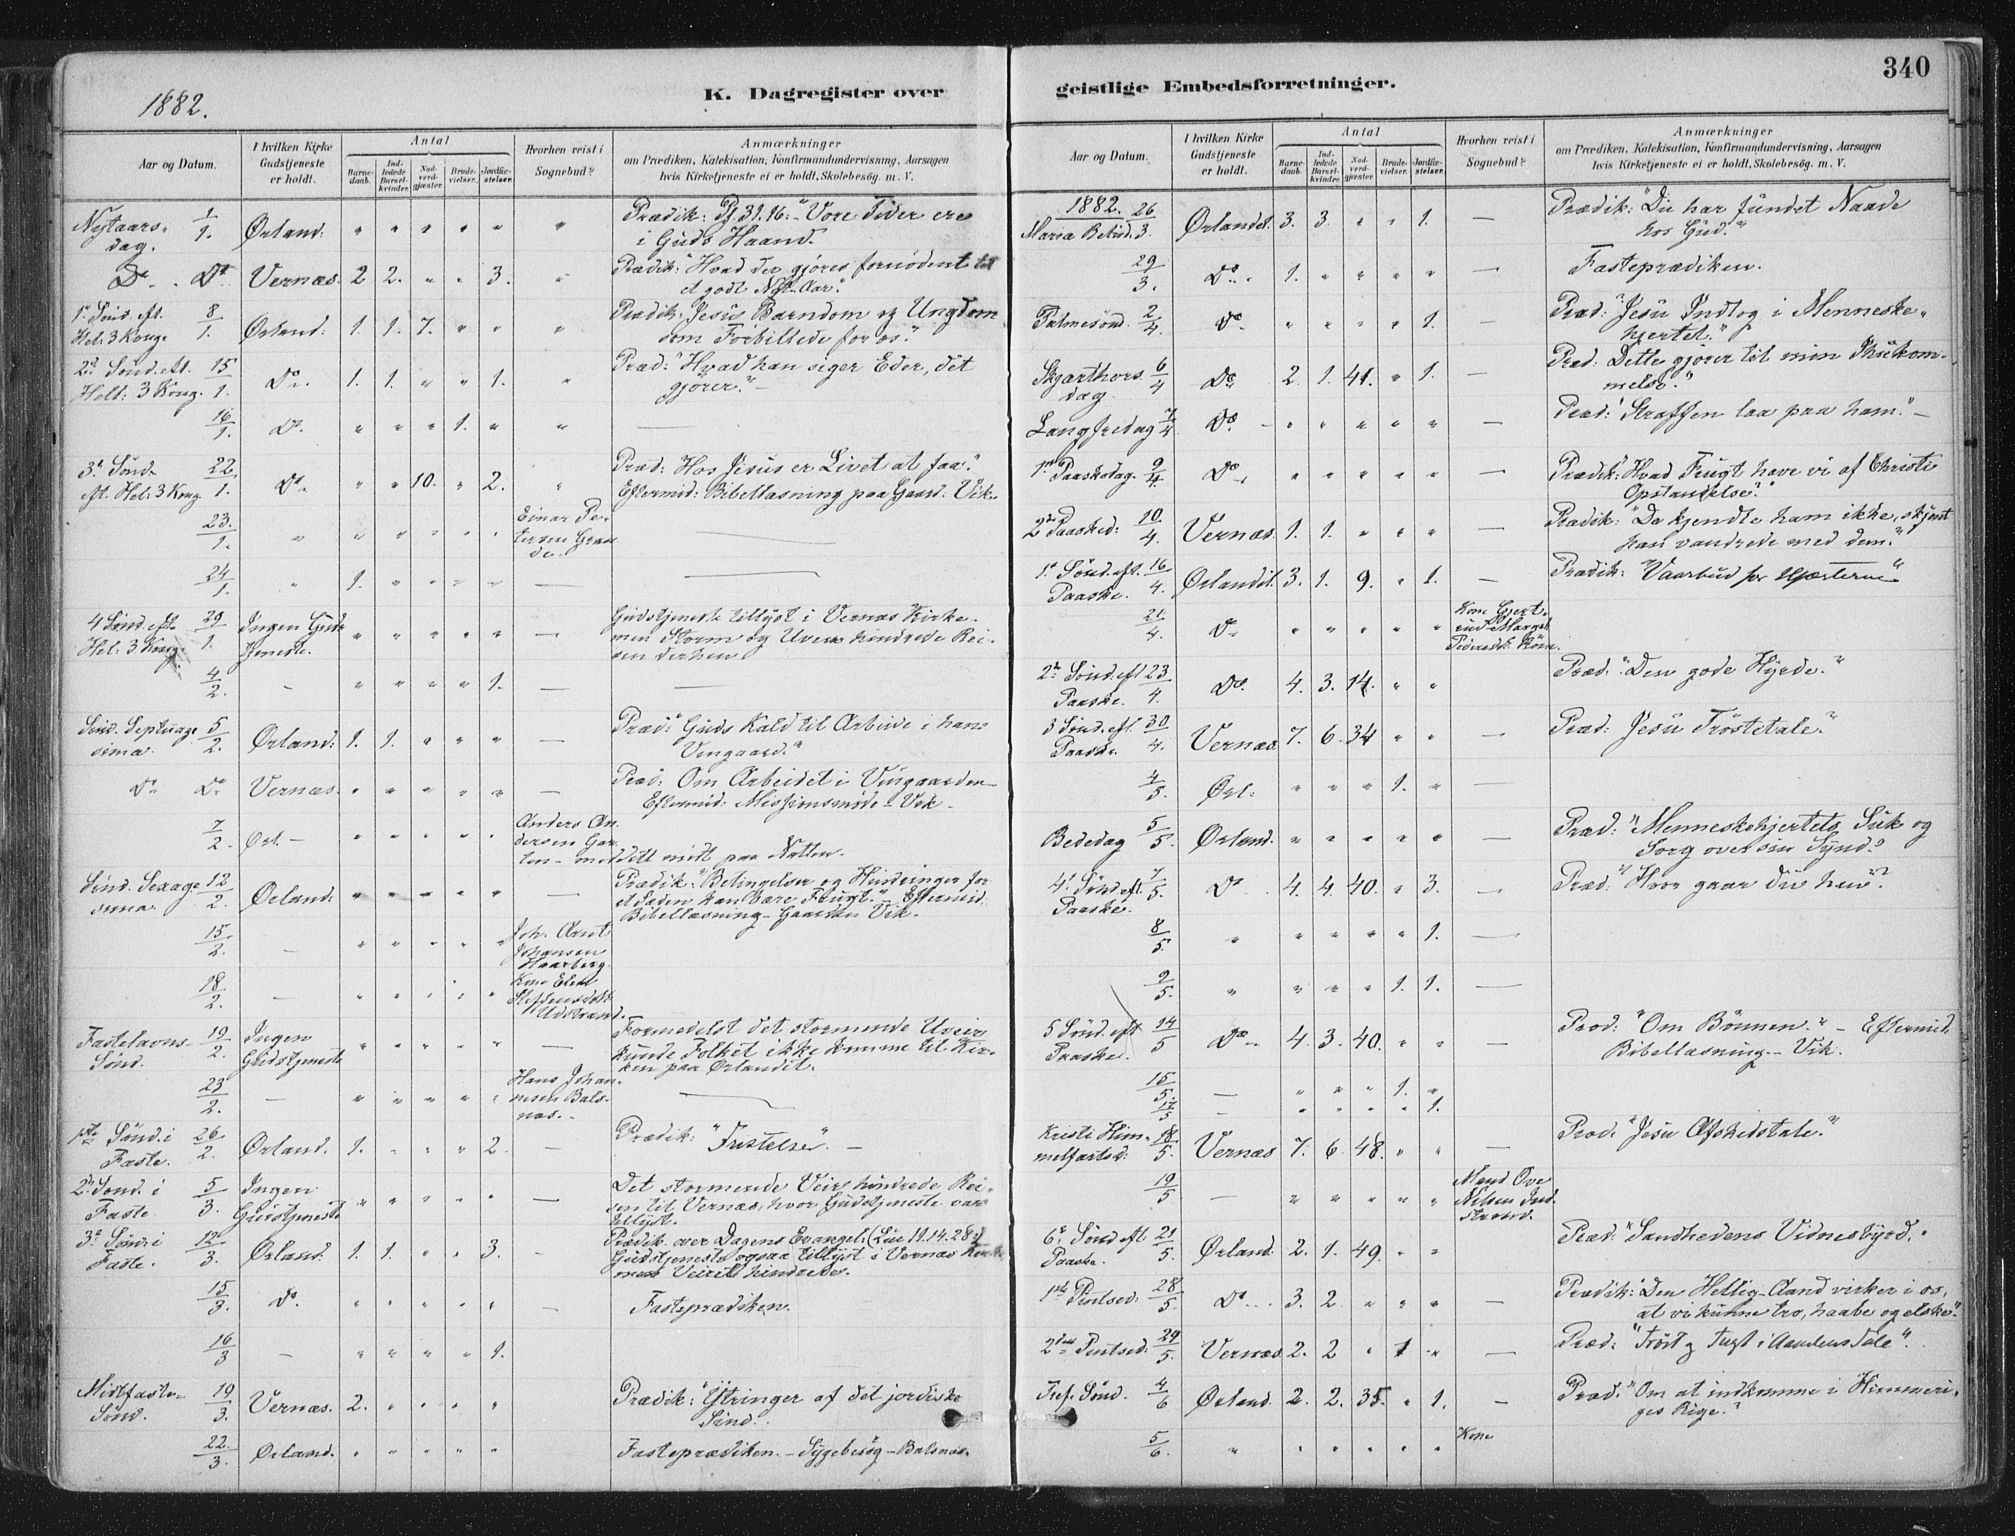 340
1882.
K. Dagregister over geistlige Embedsforretninger.
Aar og Datum. | I hvilken Kirke Gudstjeneste er holdt. | Antal | Barne-daab. | Ind-ledede Barsel-kvinder. | Nad-verd-gjæster. | Brude-vielser. | Jordfæ-stelser. | Hvorhen reist i Sognebud? | Anmærkninger om Prædiken, Katekisation, Konfirmandundervisning, Aarsagen hvis Kirketjeneste ei er holdt, Skolebesøg. m. V.
Nytaars- 1/1. Ørland. " " " " " " Prædik: Ps 31.16: "Vore Tider ere
dag. i Guds Haand.
Do . Do Vernæs. 2 2. " " 3. " Prædik: "Hvad der gjøres fornødent til
et godt Nyt-Aar."
1e Sønd. eft. 8/1. Ørland: 1. 1. 7. " " " Prædik: Jesus Barndom og Ungdom
Hel: 3 Kong. som Forbillede for os."
2d Sønd. eft. 15/1. Do. 1. 1. " " 1. " Præd: "Hvad han siger Eder, det
Hell: 3 Kong. gjører." -
16/1. Do. " " " 1. " " —
3e Sønd. 22/1. Do. " " 10. " 2. " Præd: "Hos Jesus er Livet at faa."
eft. Hel: 3 Kong. Eftermid: Bibellæsning paa Gaard. Vik.
23/1. " " " " " " Einar Pe-
tersen Gran
de. —
24/1. " 1. " " " " — —
4 Sønd. eft. 29/1. Ingen Guds " " " " " — Gudstjeneste tillyst i Vernæs Kirke.
Hel: 3 Kong. tjeneste. men Storm og Uveir hindrede Rei-
sen derhen
4/2. - " " " " 1. — —
Sønd. Septuage 5/2. Ørland: 1. 1. " " " — Præd: "Guds Kald til Arbeide i hans
sima. Vingaard."
Do Do Vernæs. " " " " " — Præd: Om Arbeidet i Vingaarden
Eftermid: Missionsmøde - Vik.
7/2. Ørl. - " " " " " Anders An
dersen Gar
ten - meddelt midt paa Natten.
Sønd. Sexage 12/2. Ørland: " " " " " — Prædik: "Betingelser og Hindringer for
sima. at Sæden kan bære Frugt." - Eftermid.
Bibellæsning - Gaarden Vik.
15/2. - " " " " " Joh. Arnt
Johansen
Haarberg.
18/2. - " " " " " Kone Elen
Steffensdatt.
Udstrand.
Fastelavns 19/2. Ingen " " " " " — Formedelst det stormende Uveir
Sønd. Gudstjeneste kunde Folket ikke komme til Kir-
ken paa Ørlandet.
23/2. - " " " " " Hans Johan-
nesen Bals-
næs. - —
1ste Sønd. i 26/2. Ørland. 1. " " " 2. — Prædik: "Fristelse" -
Faste.
2d Sønd. i 5/3. Ingen " " " " " — Det stormende Veir hindrede Rei-
Faste Gudstjeneste sen til Vernæs, hvor Gudstjeneste var
tillyst.
3d Sønd. i 12/3. Ørland. 1. 1. " " 3. Prædik. over Dagens Evangel: (Luc 11.14.28.)
Faste. Gudstjeneste ogsaa tillyst i Vernæs Kirke
men Veiret hindrede.
15/3. Do. " " " " " — Fasteprædiken.
16/3 - " " " " 1. —
Midtfaste- 19/3. Vernæs. 2. " " " " Prædik: "Ytringer af det jordiske
Sønd. Sind.
22/3. Ørland. " " " " " Fasteprædiken. - Sygebesøg - Balsnæs.
Aar og Datum. | I hvilken Kirke Gudstjeneste er holdt. | Antal | Barne-daab. | Ind-ledede Barsel-kvinder. | Nad-verd-gjæster. | Brude-vielser. | Jordfæ-stelser. | Hvorhen reist i Sognebud? | Anmærkninger om Prædiken, Katekisation, Konfirmandundervisning, Aarsagen hvis Kirketjeneste ei er holdt, Skolebesøg. m. V.
1882. 26/3. Ørlandet. 3. 3. " " 1. — Prædik: "Du har fundet Naade
Maria Bebud. hos Gud."
29/3. Do. 1. " " " " — Fasteprædiken.
Palmesønd. 2/4. Do. " " " " 1. — Præd: "Jesu Indtog i Menneske-
hjertet."
Skjærthors 6/4 Do. 2. 1. 41. " 1. — Præd: Dette gjører til min Ihukom-
dag. melse."
Langfredag 7/4 Do. - " " " " " — Præd: "Straffen laa paa ham." -
1ste Paaskedag. 9/4. Do. " " " " " — Prædik: Hvad Frugt have vi af Christi
Opstandelse?"
2den Paasked: 10/4. Vernæs. 1. 1. " " " — Prædik: "De kjendte ham ikke, skjønt
han vandrede med dem."
1e Sønd. eft. 16/4. Ørlandet. 3. 1. 9. " 1. — Prædik: "Vaarbud for Hjerterne"
Paaske.
21/4. Do " " " " " Kone Gjert-
rud Margt.
Pedersdt. Røm.
2d Sønd. eft 23/4. Do. 4. 3. 14. " " Præd: "Den gode Hyrde."
Paaske.
3 Sønd. eft. 30/4. Vernæs. 7. 6. 34 " " — Præd: Jesu Trøstetale."
Paaske.
4/5. Ørl: " " " 1. " —
Bededag 5/5. Ørland. " " " " " — Præd: "Menneskehjertets Suk og
Sorg over sin Synd."
4e Sønd. eft. 7/5. Do 4. 4 40. " 3. — Præd: "Hvor gaar du hen"?
Paaske.
8/5. " " " " " 1. —
9/5. " " " " 1. 1. —
5 Sønd. eft 14/5 Do. 4. 3. 40. " " — Præd: "Om Bønnen." - Eftermid.
Paaske. Bibellæsning - Vik.
15/5. - " " " 1. "
17/5 - " " " " 1.
Kristi Him- 18/5. Vernæs 7. 6. 48. " " — Præd: "Jesu Afskedstale."
melfartsd:
19/5 - " " " " " Mand Ove
Nilsen Ind
strand.
6e Sønd eft. 21/5. Ørland. 2. 1. 49. " " Præd: "Sandhedens Vidnesbyrd."
Paaske.
1ste Pintsed: 28/5. Do. 3. 2. " " " — Prædik: "Den Hellig-Aand virker i os,
at vi kunne tro, haabe og elske."
2den Pintsed: 29/5. Vernæs. 2. 2 " 1 " — Præd: "Trøst og Tugt i Aandens Tale".
Tref. Sønd. 4/6 Ørland. 2. 2. 35. " 1. — Præd: "Om at indkomme i Himmeri-
ges Rige."
5/6. " " " " " " Kone